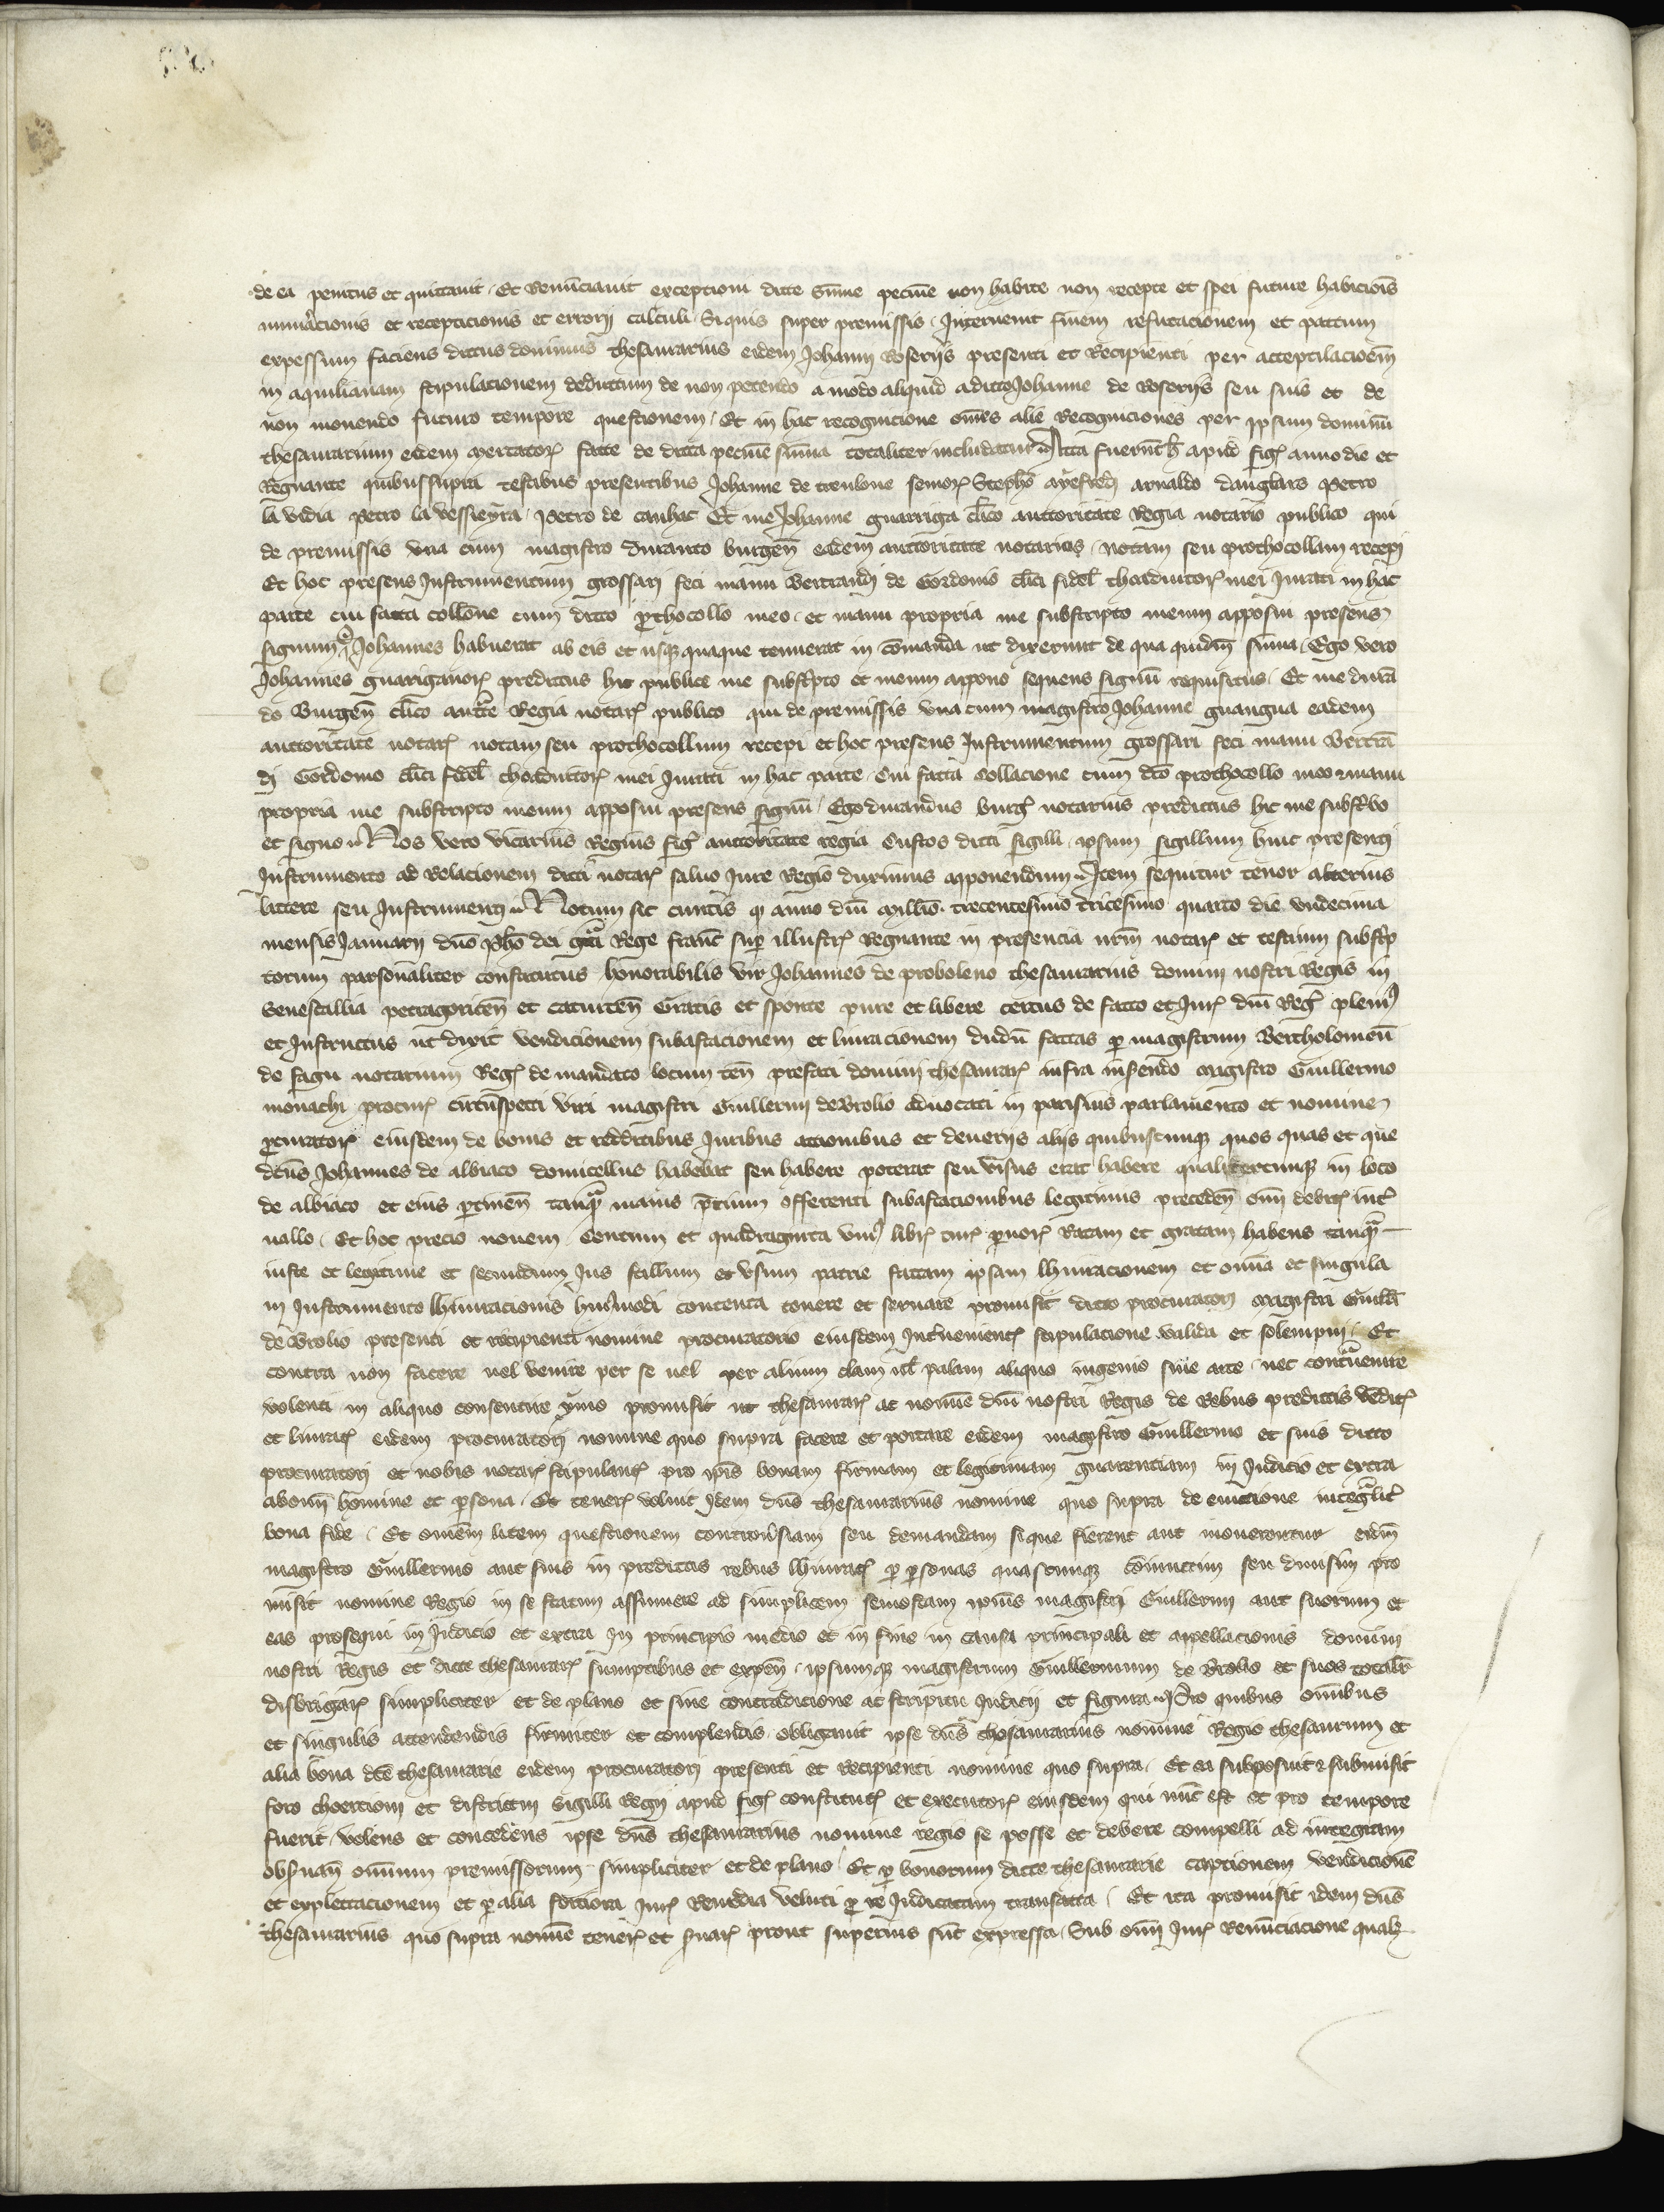 de ea penitus et quittauit Et Renūciauit exceptioni dicte sūme pecūie non habite non recepte et spei future habicionis
numeracionis et recepticionis et errorij calculi Si quis super premissis Interuenit finem refutacionem et pactum
expressum faciens dictus dominus thesaurarius eidem Johanni Roserijs presenti et Recipienti per acceptilacioēm
in aquilianam stipulacionem deductum de non petendo a modo aliquid a dicto Johanne de Roserijs seu suis et de
non mouendo futuro tempore questionem Et in hac recognicione omēs alie Recogniciones per ipsum dominū
thesaurarium eidem mercatorꝭ facte de dicta pecūie sūma totaliter includatur Acta fuerūt h̄ apud figꝭ anno die et
Regnante quibus supra testibus presentibus Johanne de trenlone seniorꝭ Stepho ayfredj arnaldo danglars Petro
la vidia Petro la vessieyra Petro de canhac Et me Johanne guarriga clico auctoritate Regia notario publico qui
de premissis vna cum magistro duranto burgeñ eadem auctoritate notarius notam seu prothocollum recepi
Et hoc presens Instrumentum grossari feci manu Bertrandj de Gordonio clici fidel choadiutorꝭ mei Jurati in hac
parte cui facta collone cum dicto prothocollo meo et manu propria me subscripto meum apposui presens
signum Johannes habuerat ab eis et usqꝫ quaque tenuerat in comanda ut dixerunt de qua quidem sūma Ego vero
Johannes guariga notꝭ predictus hic publice me subscripto et meum appono sequens signū requisitus Et me durā
do Burgeñ clico auctte Regia notarꝭ publico qui de premissis vna cum magistro Johanne guarriga eadem
auctoritate notarꝭ notam seu prothocollum recepi et hoc presens Instrumentum grossari feci manu Bertrā
dj Gordonio clici fidel choadiutorꝭ mei Jurati in hac parte Cui facta collacione cum dco prothocollo meo et manu
propria me subscripto meum apposui presens signū Ego durandus burgꝭ notarius predictus hic me subscribo
et signo Nos vero vicarius Regius figꝭ auctoritate regia Custos dicti sigilli ipsum sigillum huic presenti
Instrumento ad Relacionem dicti notarꝭ saluo Jure Regio duximus apponendum Item sequitur tenor alterius
littere seu Instrumenti Notum sit cunctis qꝫ anno dnī millio trecentesimo tricesimo quarto die vndecima
mensis Januarij dno Pho dei gra Rege franc sup illustrꝭ Regnante in presencia nrm notarꝭ et testium subscrip
torum personaliter constitutus honorabilis vir Johannes de proboleno thesaurarius domini nostri Regis in
Senescallia petragoriceñ et caturceñ Gratis et sponte pure et libere certus de facto et Jurꝭ dnī Regꝭ plenius
et Instructus ut dixit vendicionem subastacionem et liuracionem dudū factas per magistrum Bertholomeū
de fagu notarium Regꝭ de mandato locum teñ prefati domini thesaurarꝭ infra inserendo magistro Guillermo
monachi procurꝭ circūspecti viri magistri Guillermi de Brolio aduocati in parisius parlamento et nomine
procuratorꝭ eiusdem de bonis et redditibus Juribus accionibus et deuerijs alijs quibuscunqꝫ quos quas et que
dcūs Johannes de albiaco domicellus habebat seu habere poterat seu visus erat habere qualitercunqꝫ in loco
de albiaco et eius pertineñ tanqꝫ maius precium offerenti subastacionibus legitimis precedeñ cum debitꝭ inter
uallo Et hoc precio nouem Centum et quadraginta vniꝰ librꝭ turꝭ paruorꝭ Ratam et gratam habens tanqꝫ
iuste et legitime et secundum Jus stillum et vsum patrie factam ipsam lhiuracionem et omīa et singula
in Instrumento lhiuracionis hmōi contenta tenere et seruare promisit dicto procuratorj magistri Guillī
de Brolio presenti et recipienti nomine procuratorio eiusdem Interuenientꝭ stipulacione valida et solempni Et
contra non facere uel venire per se uel per alium clam uel palam aliquo ingenio siue arte nec contrauenire
volenti in aliquo consentire ymo promisit ut thesaurarꝭ ac nomīe dnī nostri Regis de Rebus predictis vēditꝭ
et liuratꝭ eidem procuratorj nomine quo supra facere et portare eidem magistro Guillermo et suis dicto
procuratorj et nobis notarꝭ stipulantꝭ pro ipīs bonam firmam et legitimam guarentiam in Judicio et extra
ab omī homine et persona Et tenerꝭ voluit Idem dns thesaurarius nomine quo supra de euiccione integraliter
bona fide Et omēm litem questionem controuersiam seu demandam si que fierent aut mouerentur eidm
magistro Guillermo aut suis in predictis rebus lhiuratꝭ per personas quascunqꝫ coniunctim seu diuisim pro
misit nomine Regio in se statim assumere ad simplicem semostam ipsius magistri Guillermi aut suorum et
eas prosequi in Judicio et extra In principio medio et in fine in causa principali et appellacionis domini
nostri Regis et dicte thesaurarꝭ sumptibus et expeñ ipsumqꝫ magistrum Guillermum de Brolio et suos totalit
disbrigarꝭ simpliciter et de plano et sine contradicione ac strepitu Judicij et figura Pro quibus omībus
et singulis attendendis firmiter et complendis obligauit ipse dns thesaurarius nomine Regio thesaurum et
alia bona dcē thesaurarie eidem procuratorj presenti et Recipienti nomine quo supra Et ea supposuit et submisit
foro choertioni et districtui Sigilli Regij apud figꝭ constitutꝭ et executorꝭ eiusdem qui nūc est et pro tempore
fuerit volens et concedens ipse dns thesaurarius nomine regio se posse et debere compelli ad integram
obseruañ omnium premissorum simpliciter et de plano Et per bonorum dicte thesaurarie captionem vendicionē
et explectacionem et per alia fortiora Jurꝭ Remedia veluti pro re Judicatam transacta Et ita promisit idem dns
thesaurarius quo supra nomīe tenerꝭ et seruarꝭ prout superius sūt expressa Sub omī Jurꝭ Renūciacione qualꝫ